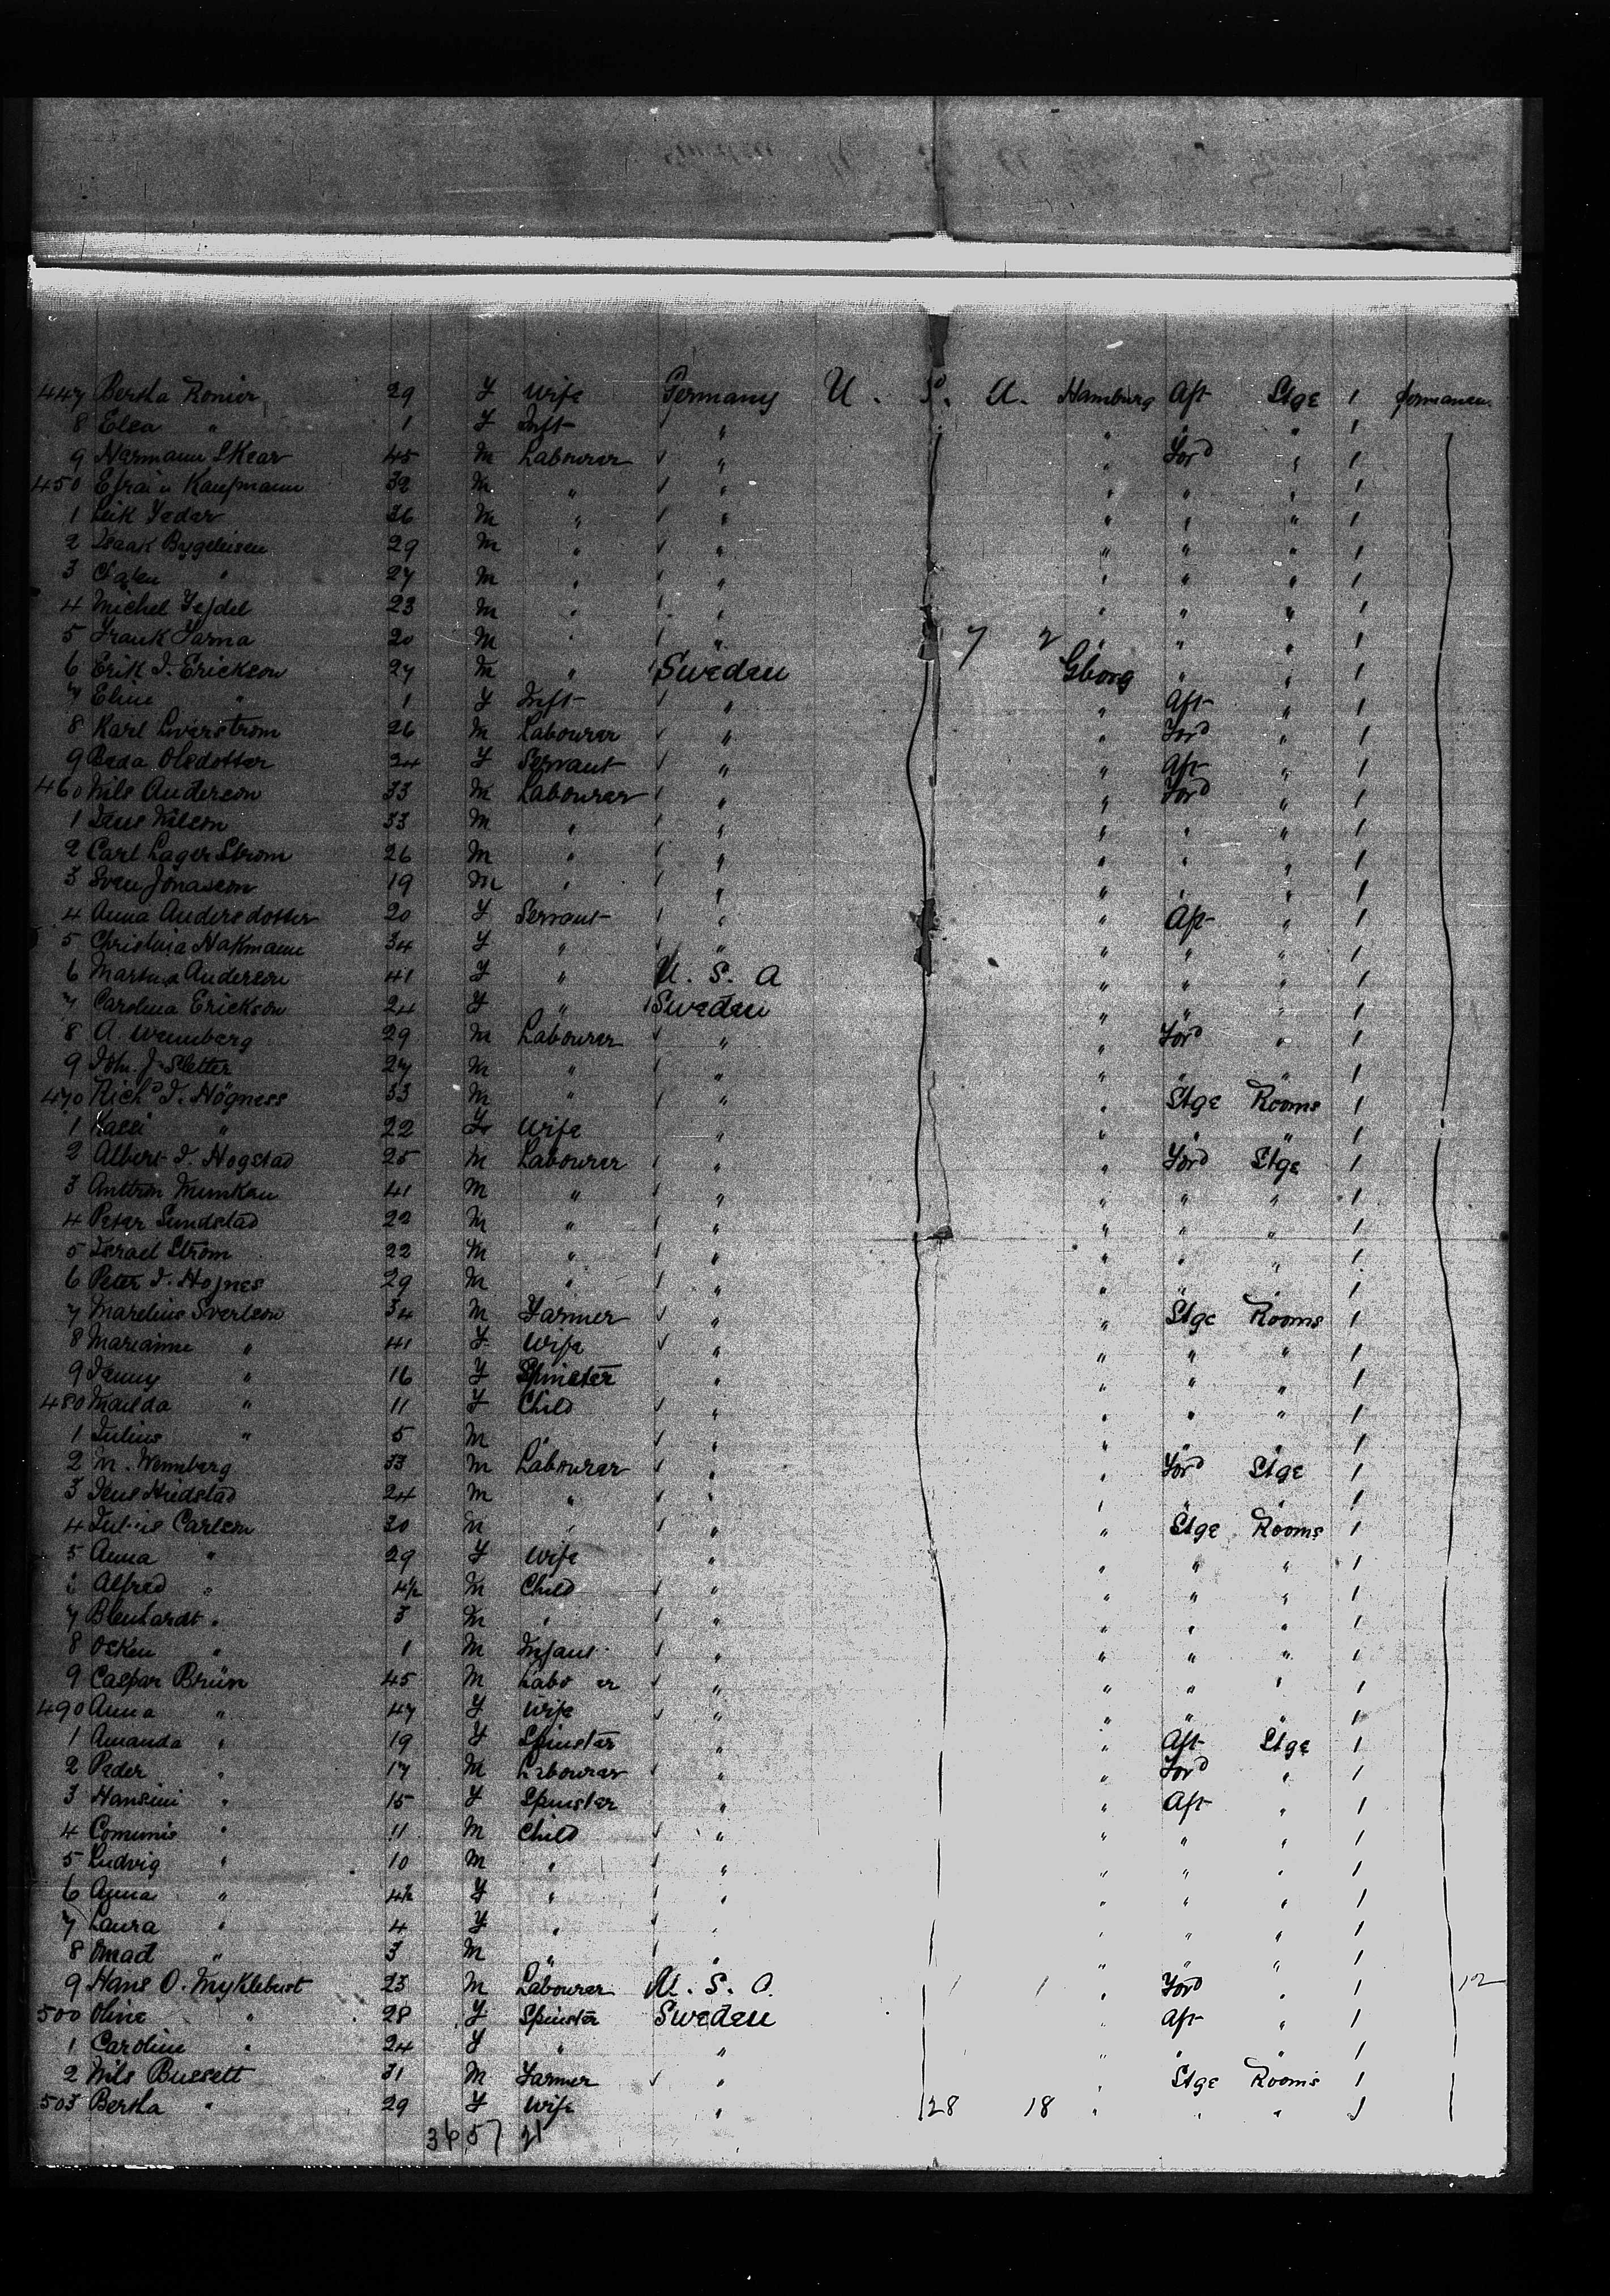 447 Bertha Ronier 29 F Wife Germany U. S. A. Hamburg Aft Stge 1
8 Elea " 1 F Inft " " " " 1
9 Narmann Skear 45 M Labourer " " Ford " 1
450 Efrain Kaufmann 32 M " " " " " 1
1 Leik Feder 36 M " " " " " 1
2 Isaak Bygeleisen 29 M " " " " " 1
3 " 27 M " " " " " 1
4 Michel 23 M " " " " " 1
5 Frank Farna 20 M " " 7 2 " " " 1
6 Erik I. Erickson 27 M " Sweden Gborg " " 1
7 Eline " 1 F Inft " " Aft " 1
8 Karl Liverstrom 26 M Labourer " " Ford " 1
9 Beda Olsdotter 24 F Servant " " Aft " 1
460 Nils Anderson 33 M Labourer " " Ford " 1
1 Jens Nilson 33 M " " " " " 1
2 Carl Lager Strom 26 M " " " " " 1
3 Sven Jonasson 19 M " " " " " 1
4 Anna Andersdotter 20 F Servant " " Aft " 1
5 Christina Hakmann 34 F " " " " " 1
6 Anderson 41 F " U. S. A " " " 1
7 Carolina Erickson 24 F " Sweden " " " 1
8 A. Wennberg 29 M Labourer " " Ford " 1
9 Joh. J. Sletter 27 M " " " " " 1
470 Richd I. Högness 33 M " " " Stge Rooms 1
1 " 22 F Wife " " " " 1
2 Albert I. Hogstad 25 M Labourer " " Ford Stge 1
3 Munkau 41 M " " " " " 1
4 Peter Sundstad 22 M " " " " " 1
5 Israel Strom 22 M " " " " " 1
6 Peter I. Hojnes 29 M " " " " " 1
7 Marelius Sverlson 34 M Farmer " " Stge Rooms 1
8 Marianne " 41 F Wife " " " " 1
9 Jenny " 16 F Spinster " " " " 1
480 Matilda " 11 F Child " " " " 1
1 Julius " 5 M " " " " " 1
2 N. Wennberg 33 M Labourer " " Ford Stge 1
3 Jens Hudstad 24 M " " " " " 1
4 Julius Carlson 30 M " " " Stge Rooms 1
5 Anna " 29 F Wife " " " " 1
6 Alfred " 4½ M Child " " " " 1
7 Blenhardt " 3 M " " " " " 1
8 Osken " 1 M Infant " " " " 1
9 Caspar Brün 45 M Labo er " " " " 1
490 Anna " 47 F Wife " " " " 1
1 Amanda " 19 F Spinster " " Aft Stge 1
2 Peder " 17 M Labourer " " Ford " 1
3 Hansini " 15 F Spinster " " Aft " 1
4 Comunis " 11 M Child " " " " 1
5 Ludvig " 10 M " " " " " 1
6 Anna " 4½ F " " " " " 1
7 Laura " 4 F " " " " " 1
8 " 3 M " " " " " 1
9 Hans O. Myklebust 23 M Labourer U. S. A. 1 1 " Ford " 1 12
500 Oline " 28 F Spinster Sweden " Aft " 1
1 Caroline " 24 F " " " " " 1
2 Nils Bussett 31 M Farmer " " Stge Rooms 1
503 Bertha " 29 F Wife " 28 18 " " " 1
36 57 21